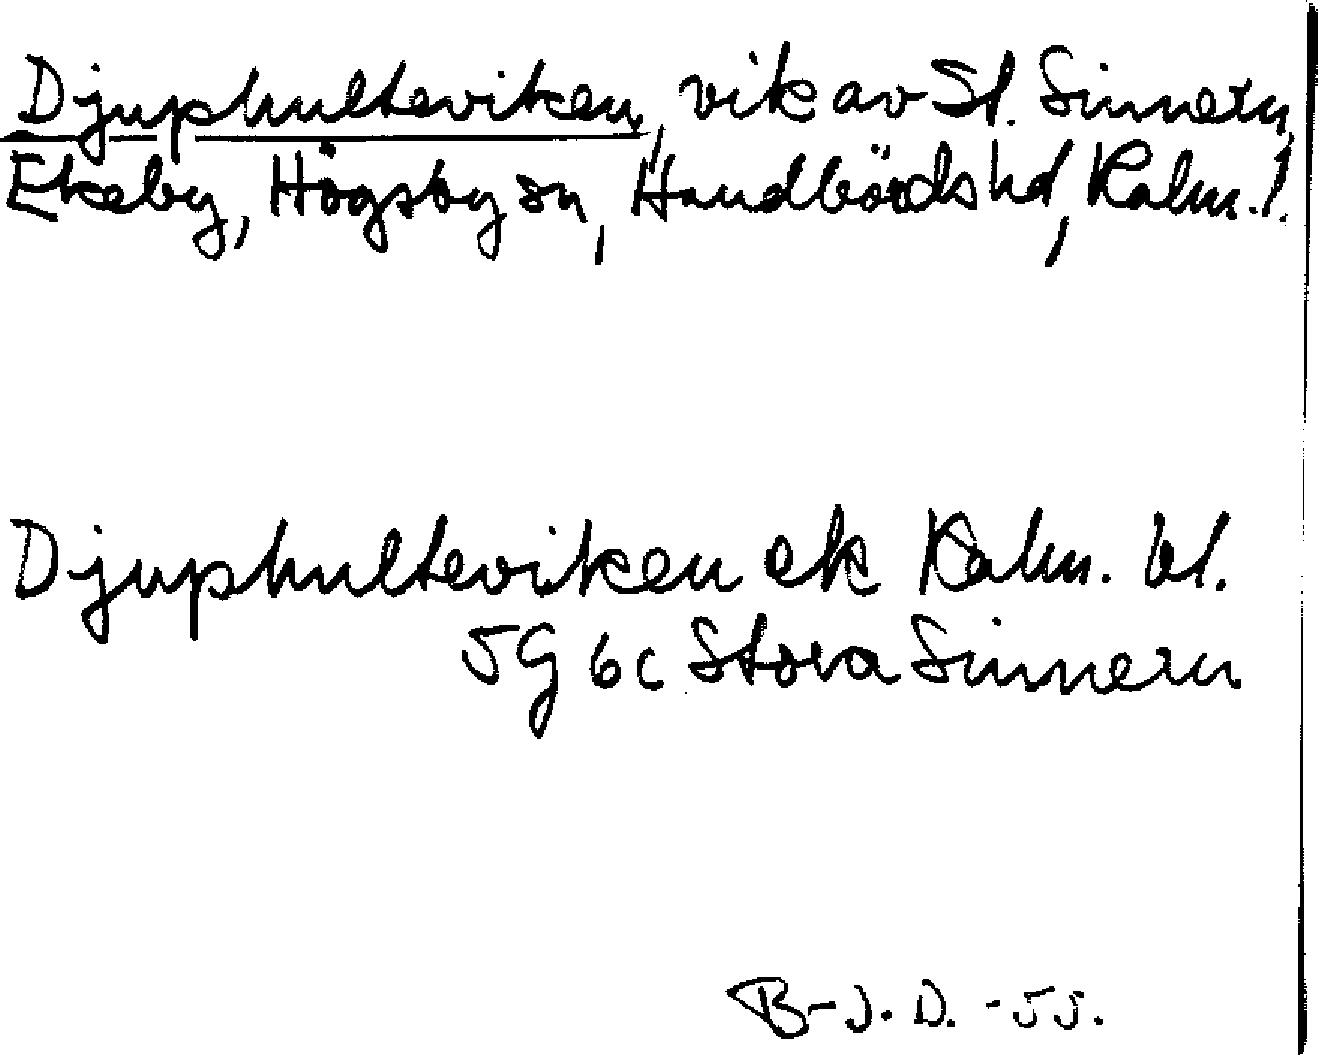 Djuphulteviken, vik av St. Sinnern,
Ekeby, Högsby sn, Handbörds hd, Kalm. l.
Djuphulteviken ek Kalm. bl.
5G 6c Stora Sinnern
B-J. D. -55.